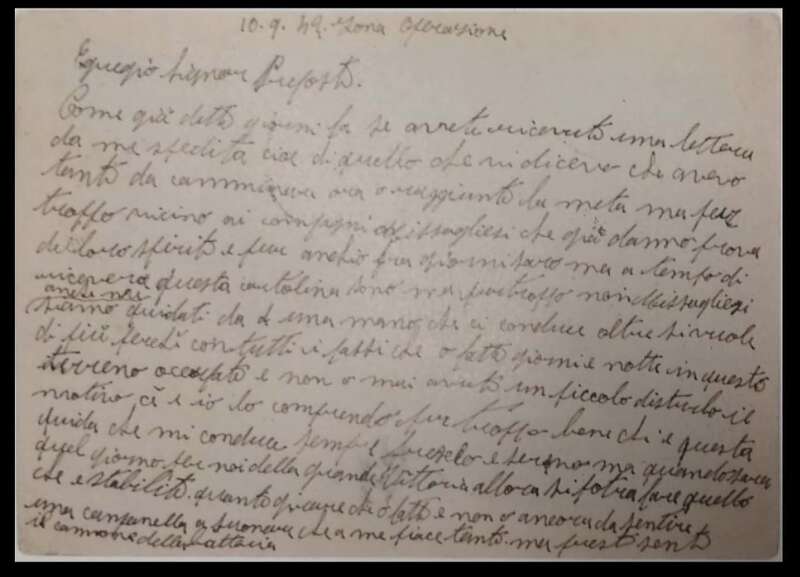 10.9.42. Zona Operazione
Egregio Signor Preposto.
Come già detto giorni fa se avrete ricevuto una lettera
da me spedita cioe di quello che vi dicevo che avevo
tanto da camminare ora o raggiunto la meta ma pur
troppo vicino ai compagni Missagliesi che già danno prova
del loro spirito e pur anchio fra giorni saro ma a tempo di
ricevere questa cartolina sono ma purtroppo noi Missagliesi
anche noi
siamo guidati da una mano che ci conduce oltre si vuole
di più perchè con tutti i passi che o fatto giorni e notte in questo
terreno occupato e non o mai avuto un piccolo disturbo il
motivo cè e io lo comprendo pur troppo bene chi e questa
guida che mi conduce sempre fresco e sereno ma quando sara
quel giorno per noi della grande Vittoria allora si potra fare quello
che e stabilito. quanto girare che o fatto e non o ancora da sentire
una campanella a suonare che a me piace tanto. ma presto sento
il cannone della battaria